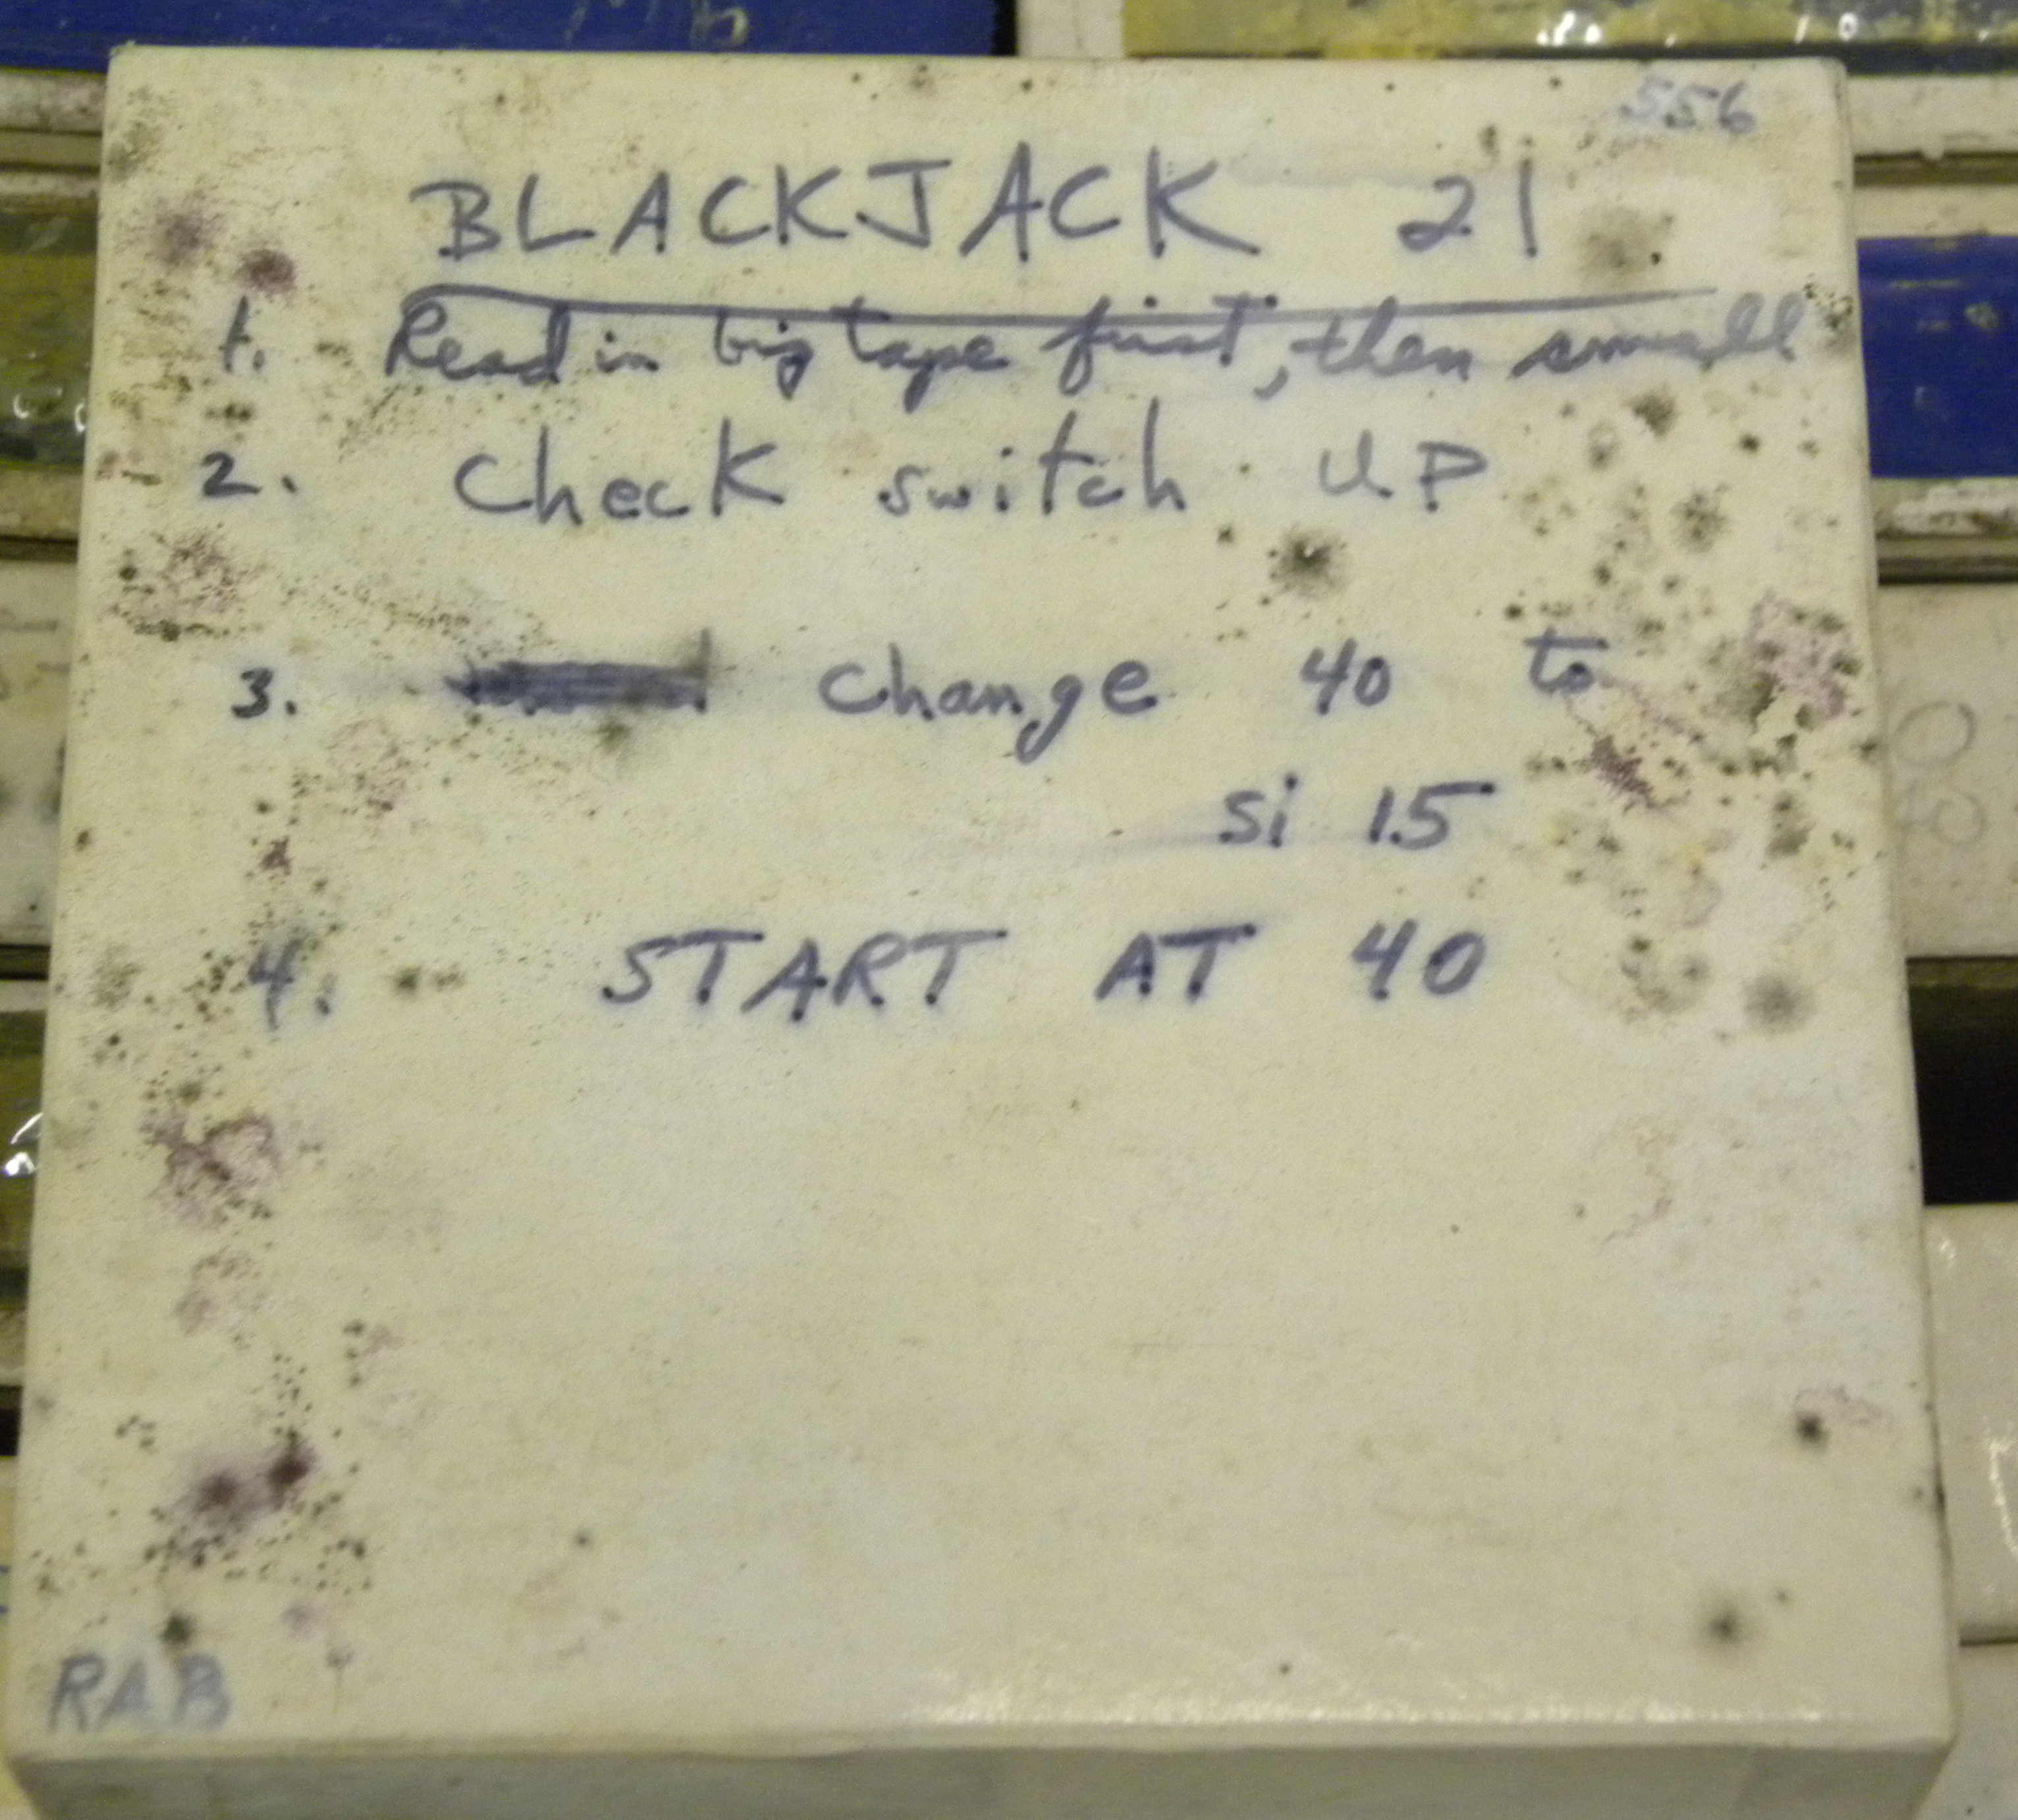 556
BLACKJACK 21
1. Read in big tape first, then small
2. Check switch UP
3. change 40 to
si 15
4. START AT 40
RAB